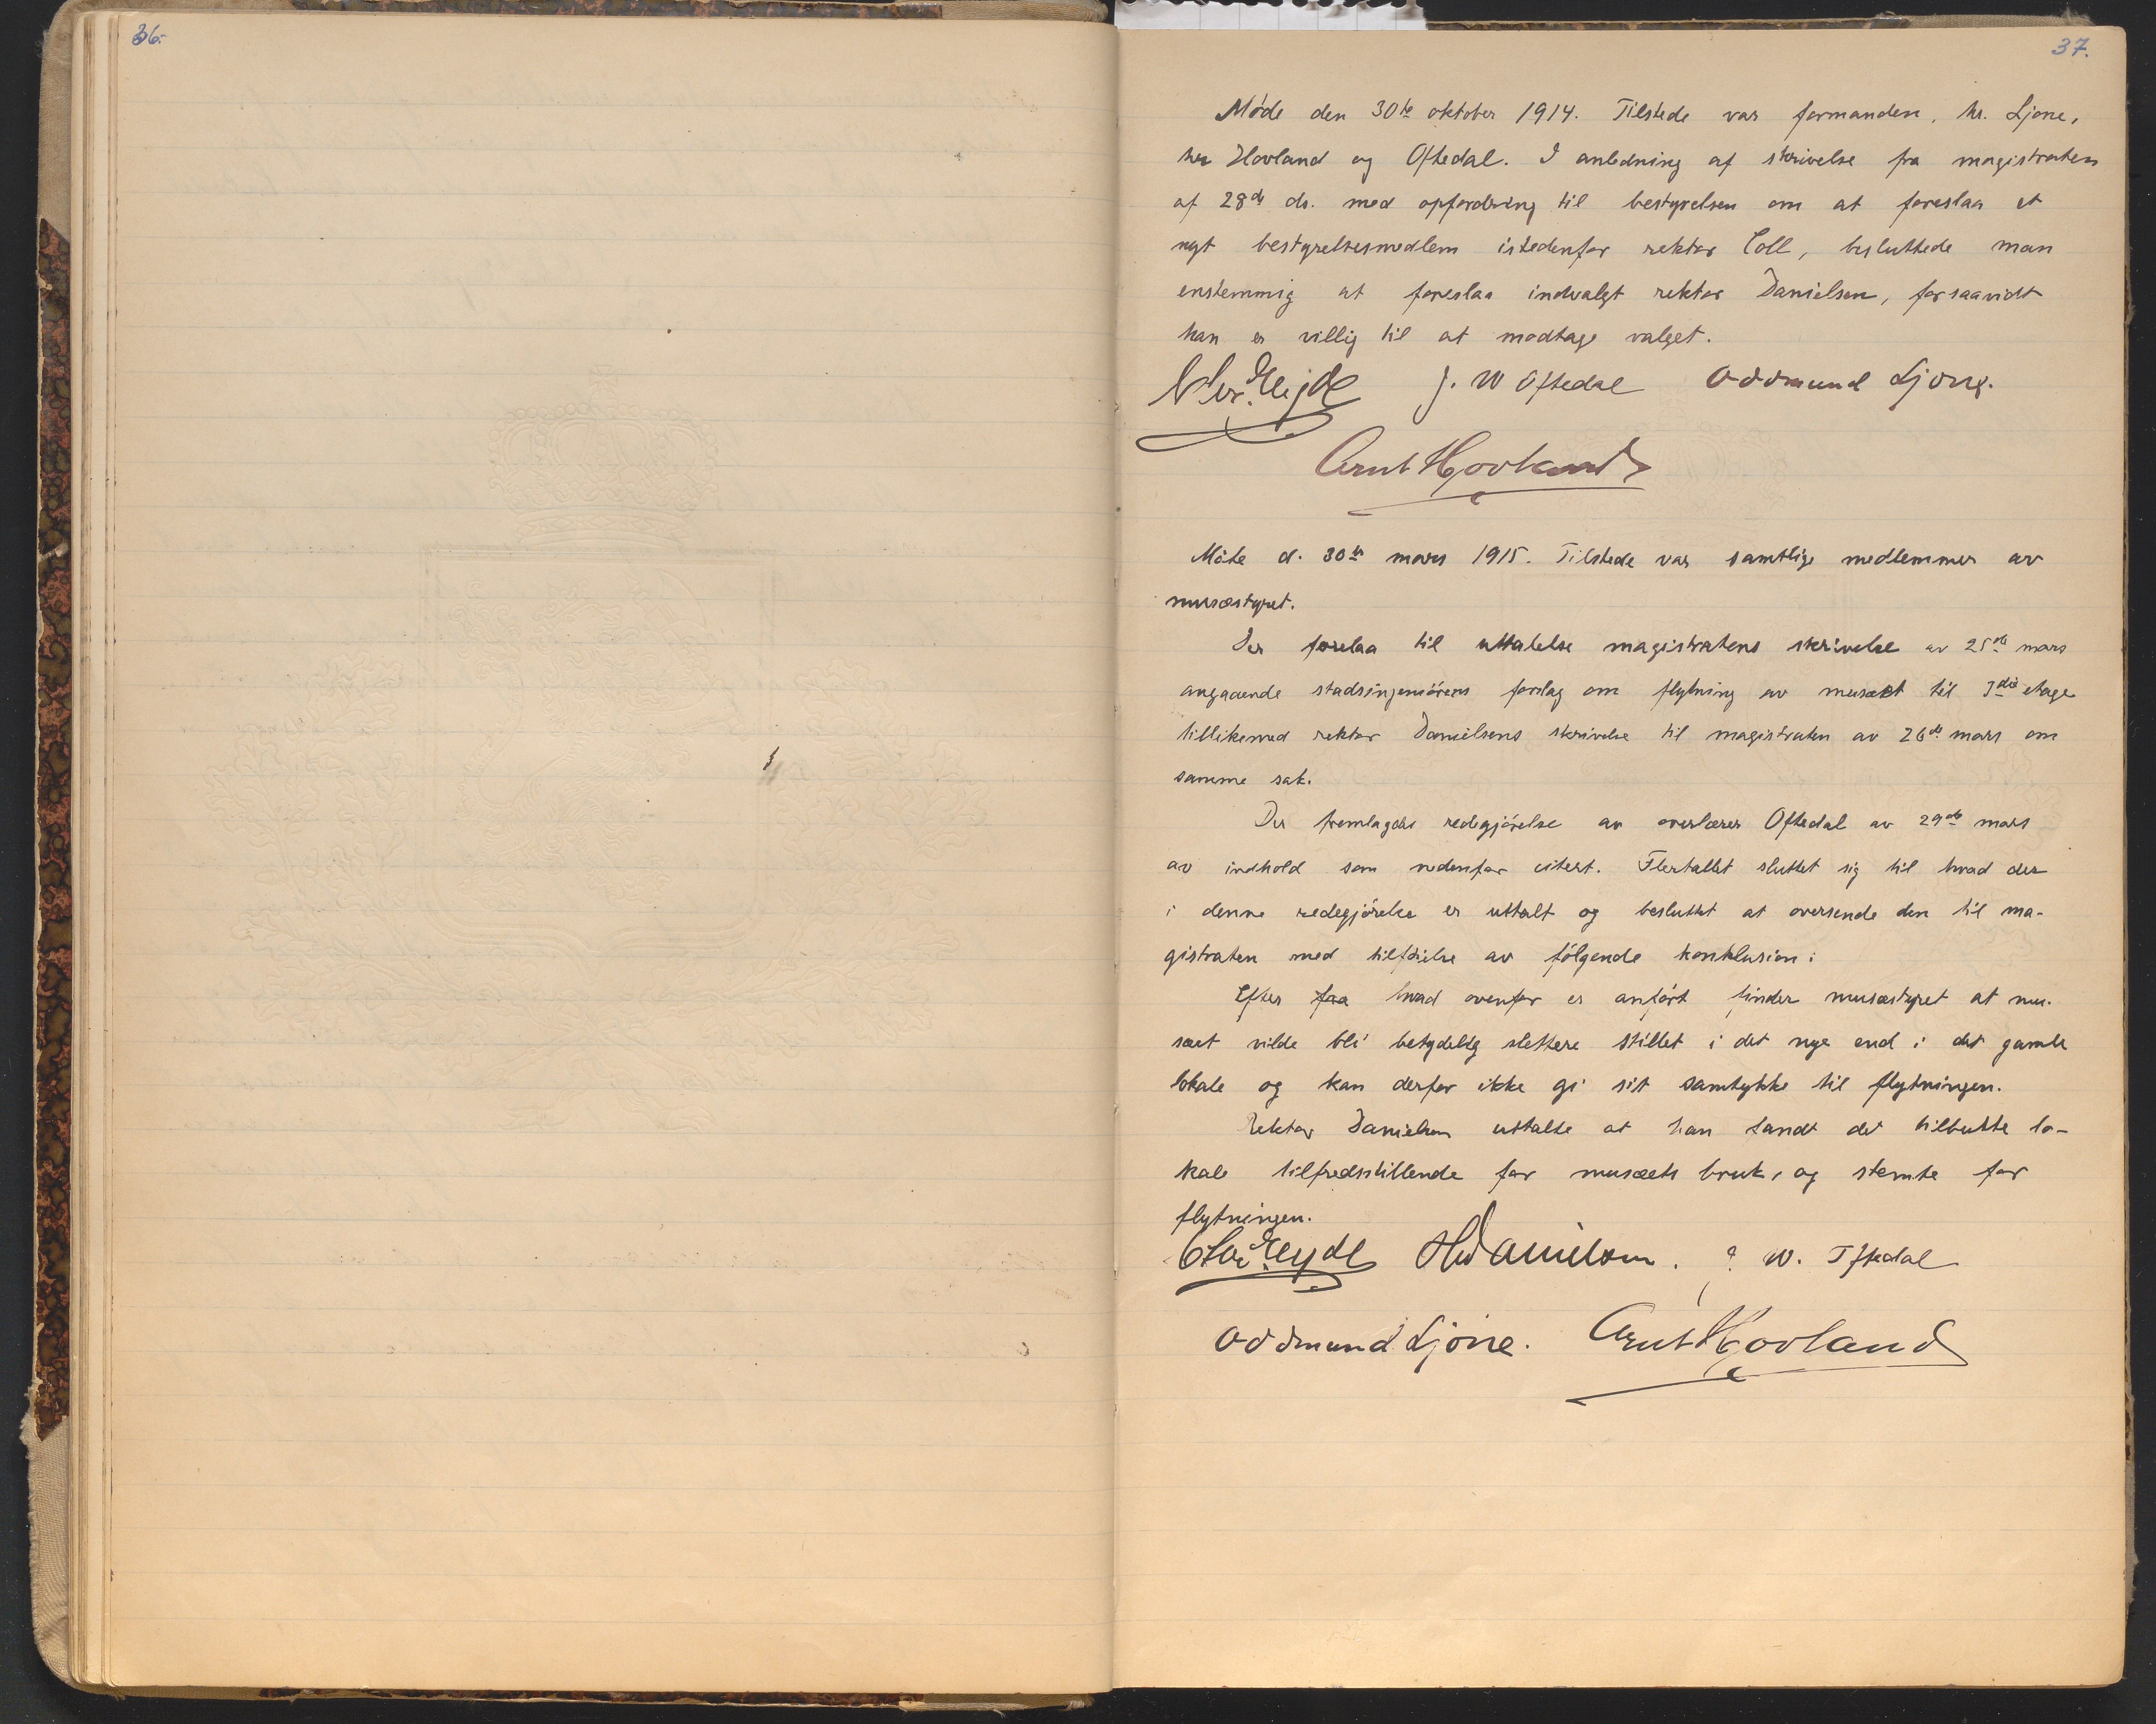 36.
37.
Møde den 30te oktober 1914. Tilstede var formanden, hr. Ljone,
hr Hovland og Oftedal. I anledning af skrivelse fra magistraten
af 28de ds. med opfordring til bestyrelsen om at foreslaa et
nyt bestyrelsesmedlem istedenfor rektor Coll, besluttede man
enstemmig at foreslaa indvalgt rektor Danielsen, forsaavidt
han er villig til at modtage valget.
J. W Oftedal Oddmund Ljone.
Arnt Hovland
Møte d. 30te mars 1915. Tilstede var samtlige medlemmer av
musæstyret.
Der forelaa til uttalelse magistratens skrivelse av 25de mars
angaaende stadsingeniørens forslag om flytning av musæet til 3die etage
tillikemed rektor Danielsens skrivelse til magistraten av 26de mars om
samme sak.
Der fremlagdes redegjørelse av overlærer Oftedal av 29de mars
av indhold som nedenfor citert. Flertallet sluttet sig til hvad der
i denne redegjørelse er uttalt og besluttet at oversende den til ma-
gistraten med tilføielse av følgende konklusion:
Efter hvad ovenfor er anført finder musæstyret at mu-
sæet vilde bli betydelig slettere stillet i det nye end i det gamle
lokale og kan derfor ikke gi sit samtykke til flytningen.
Rektor Danielsen uttalte at han fandt det tilbudte lo-
kale tilfredsstillende for musæets bruk, og stemte for
flytningen.
HDanielsen. J. W. Oftedal
Oddmund Ljone. Arnt Hovland